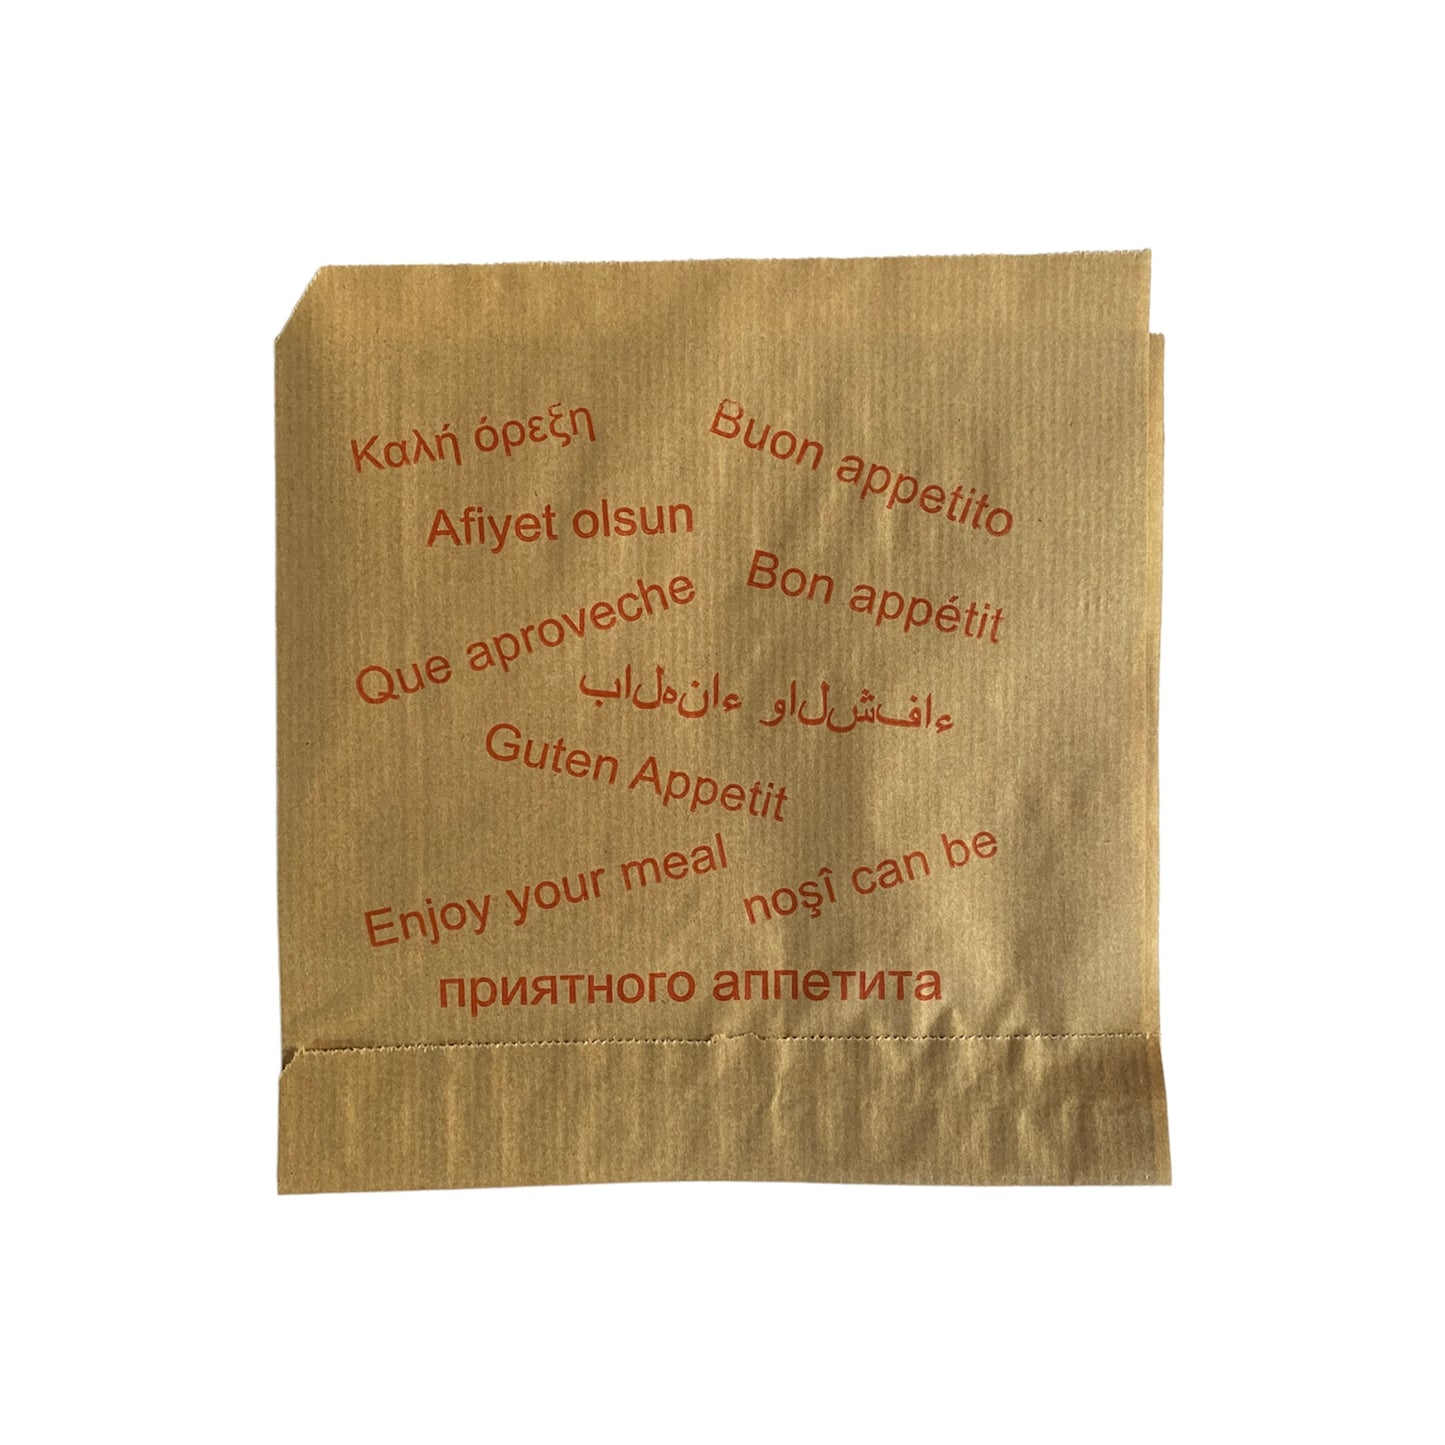 Καλή όρεξη
Buon appetito
Afiyet olsun
Bon appétit
Que aproveche
بالهناء والشفاء
Guten Appetit
Enjoy your meal
noşî can be
приятного аппетита